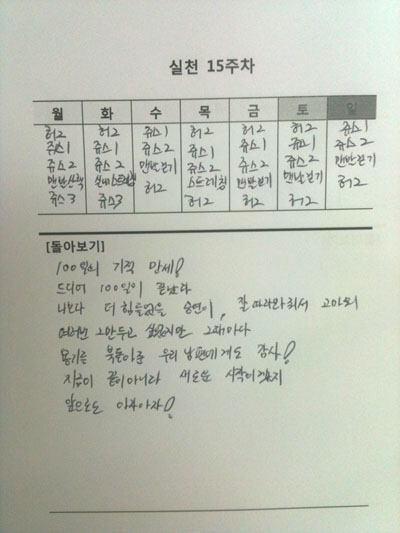 실천 15주차
월 화 수 목 금 토 일
허2 허2 쥬스1 허2 허2 허2 쥬스1
쥬스1 쥬스1 쥬스2 쥬스1 쥬스1 쥬스1 쥬스2
쥬스2 쥬스2 만반보기 쥬스2 쥬스2 쥬스2 만반보기
쥬스3 쥬스3 허2 스트레칭 만반보기 허2
허2 허2 허2
[돌아보기]
100일의 기적 만세!
드디어 100일이 끝났다
나보다 더 힘들었을 승연이, 잘 따라와줘서 고마워
여러번 그만두고 싶었지만 그때마다
용기를 북돋아준 우리 남편에게도 감사!
지금이 끝이 아니라 새로운 시작이겠지
앞으로도 아자아자!